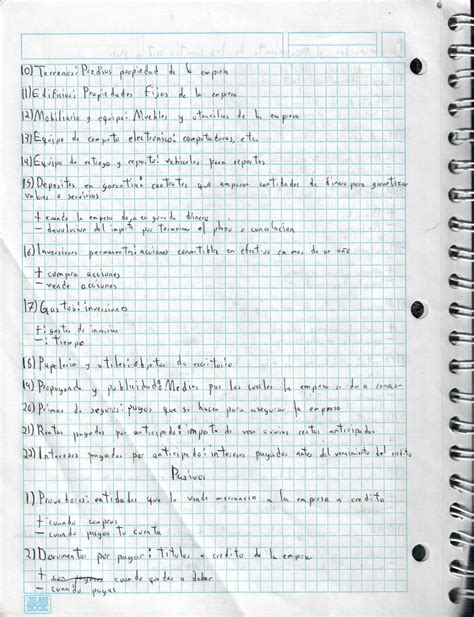 10) Terrenos: Predios propiedad de la empresa
11) Edificios: Propiedades fijas de la empresa
12) Mobiliario y equipo: Muebles y utensilios de la empresa
13) Equipo de computo electronico: computadoras, etc.
14) Equipo de entrega y reparto: vehiculos para repartos
15) Depositos en garantia: contratos que amparan cantidades de dinero para garantizar
valores o servicios
+ cuando la empresa deja en guarda dinero
- devolucion del importe por terminar el plazo o cancelacion
16) Inversiones permanentes: acciones convertibles en efectivo en mas de un año
+ compra acciones
- vende acciones
17) Gastos: inversiones
+: gastos de inversion
-: tiempo
18) Papeleria y utiles: objetos de escritorio
19) Propaganda y publicidad: Medios por los cuales la empresa se da a conocer
20) Primas de seguros: pagos que se hacen para asegurar la empresa
21) Rentas pagadas por anticipado: importe de una o varias rentas anticipadas
22) Intereses pagados por anticipado: intereses pagados antes del vencimiento del credito
Pasivos
1) Proveedores: entidades que le vende mercancia a la empresa a credito
+ cuando compras
- cuando pagas tu cuenta
2) Documentos por pagar: titulos a credito de la empresa
+ cuando quedas a deber
- cuando pagas
JEAN BOOK